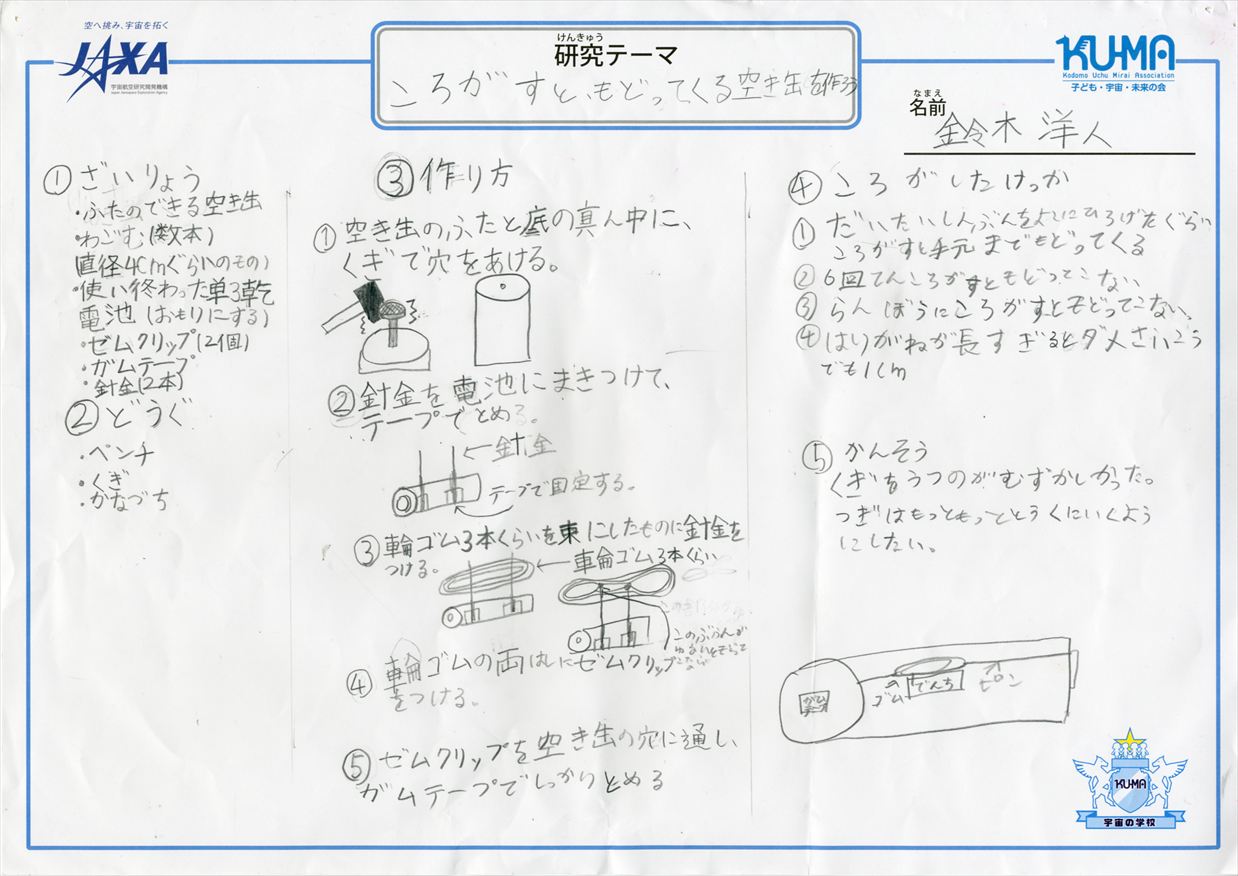 空へ挑み、宇宙を拓く
JAXA
宇宙航空研究開発機構
Japan Aerospace Exploration Agency
けんきゅう
研究テーマ
ころがすと、もどってくる空き缶を作ろう
KU-MA
Kodomo Uchu Mirai Association
子ども・宇宙・未来の会
なまえ
名前
鈴木 洋人
① ざいりょう
・ふたのできる空き缶
・わごむ(数本)
(直径4cmぐらいのもの)
・使い終わった単3乾
電池(おもりにする)
・ゼムクリップ(2個)
・ガムテープ
・針金(2本)
② どうぐ
・ペンチ
・くぎ
・かなづち
③ 作り方
① 空き缶のふたと底の真ん中に、
くぎで穴をあける。
② 針金を電池にまきつけて、
テープでとめる。
針金
テープで固定する。
③ 輪ゴム3本くらいを束にしたものに針金を
つける。
輪ゴム3本くらい
このぶぶんが
ゆるいともどって
こない
④ 輪ゴムの両はしにゼムクリップ
をつける。
⑤ ゼムクリップを空き缶の穴に通し、
ガムテープでしっかりとめる
④ ころがしたけっか
① だいたいしんぶんをよこにひろげたぐらい
ころがすと手元までもどってくる
② 6回てんころがすともどってこない
③ らんぼうにころがすともどってこない。
④ はりがねが長すぎるとダメさいこう
でも1cm
⑤ かんそう
くぎをうつのがむずかしかった。
つぎはもっともっととうくにいくよう
にしたい。
ガム
テープ
ゴム
でんち
ピン
KU-MA
宇宙の学校